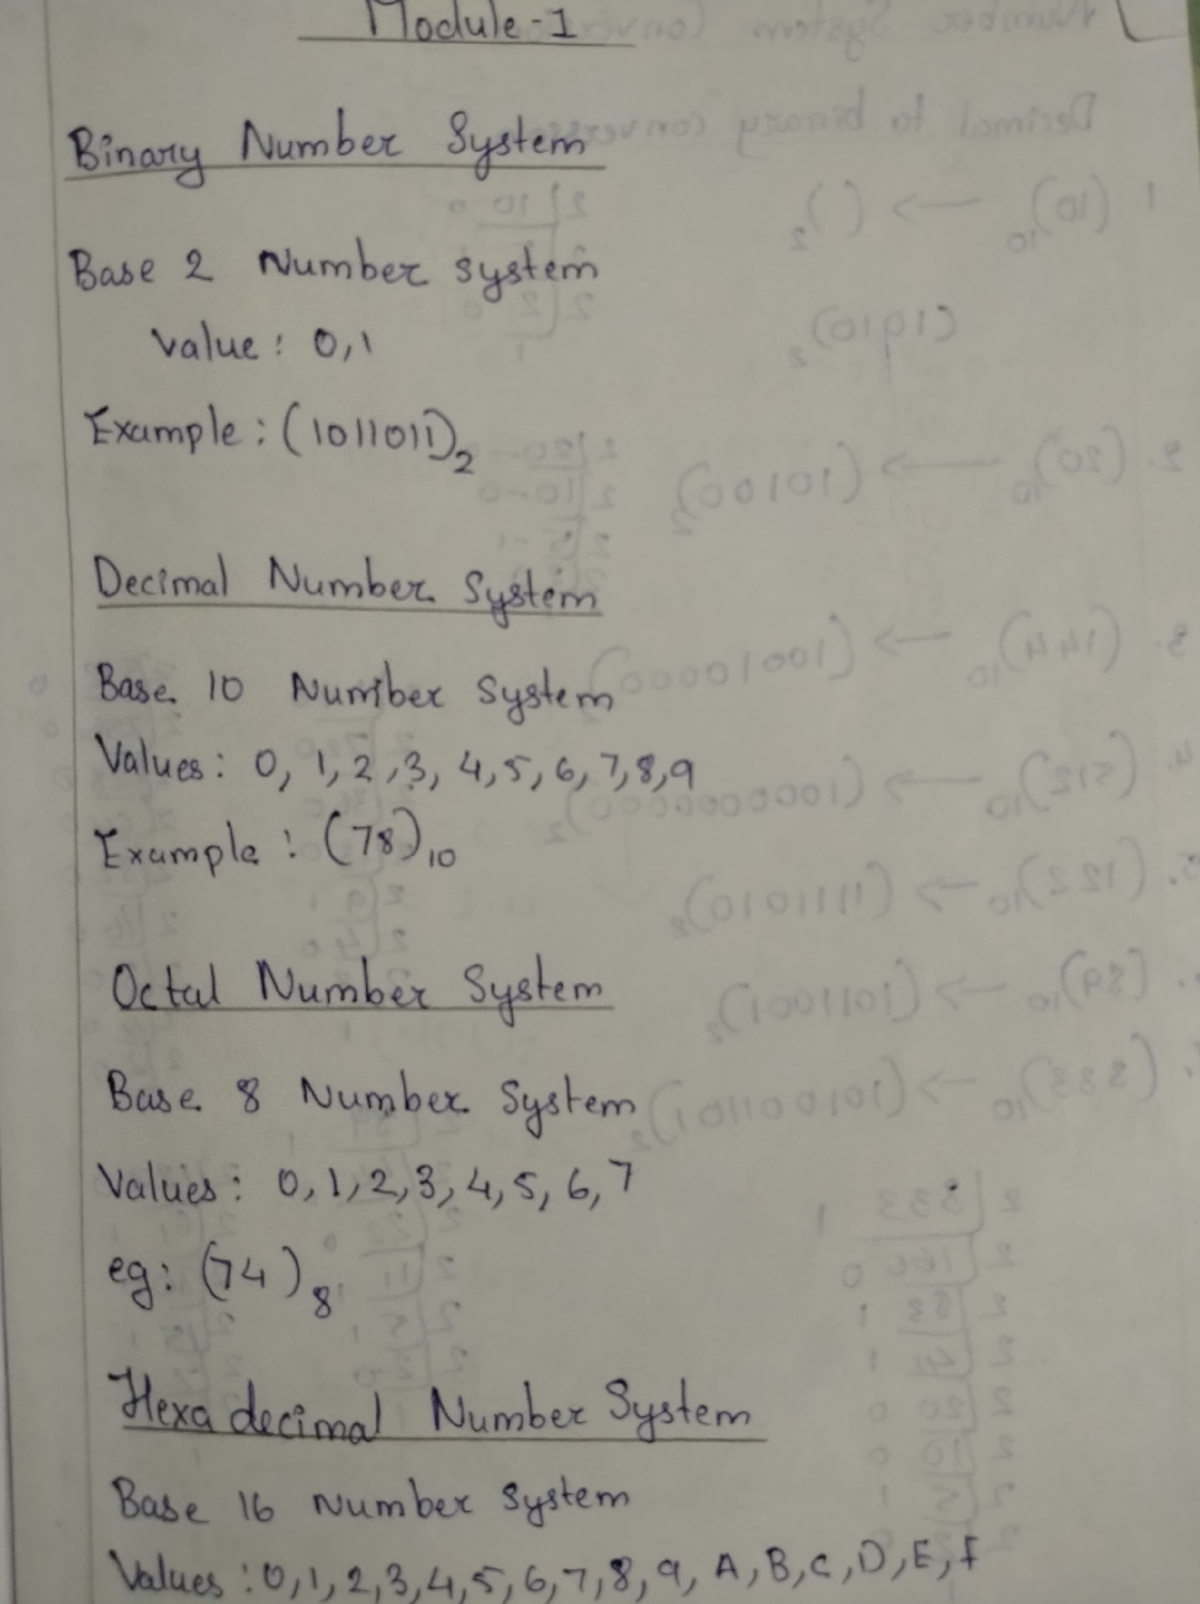 Module-1
Binary Number System
Base 2 Number system
Value: 0,1
Example: (1011011)2
Decimal Number System
Base 10 Number System
Values: 0, 1, 2, 3, 4, 5, 6, 7, 8, 9
Example: (78)10
Octal Number System
Base 8 Number System
Values: 0, 1, 2, 3, 4, 5, 6, 7
eg: (74)8
Hexa decimal Number System
Base 16 Number System
Values: 0, 1, 2, 3, 4, 5, 6, 7, 8, 9, A, B, C, D, E, F